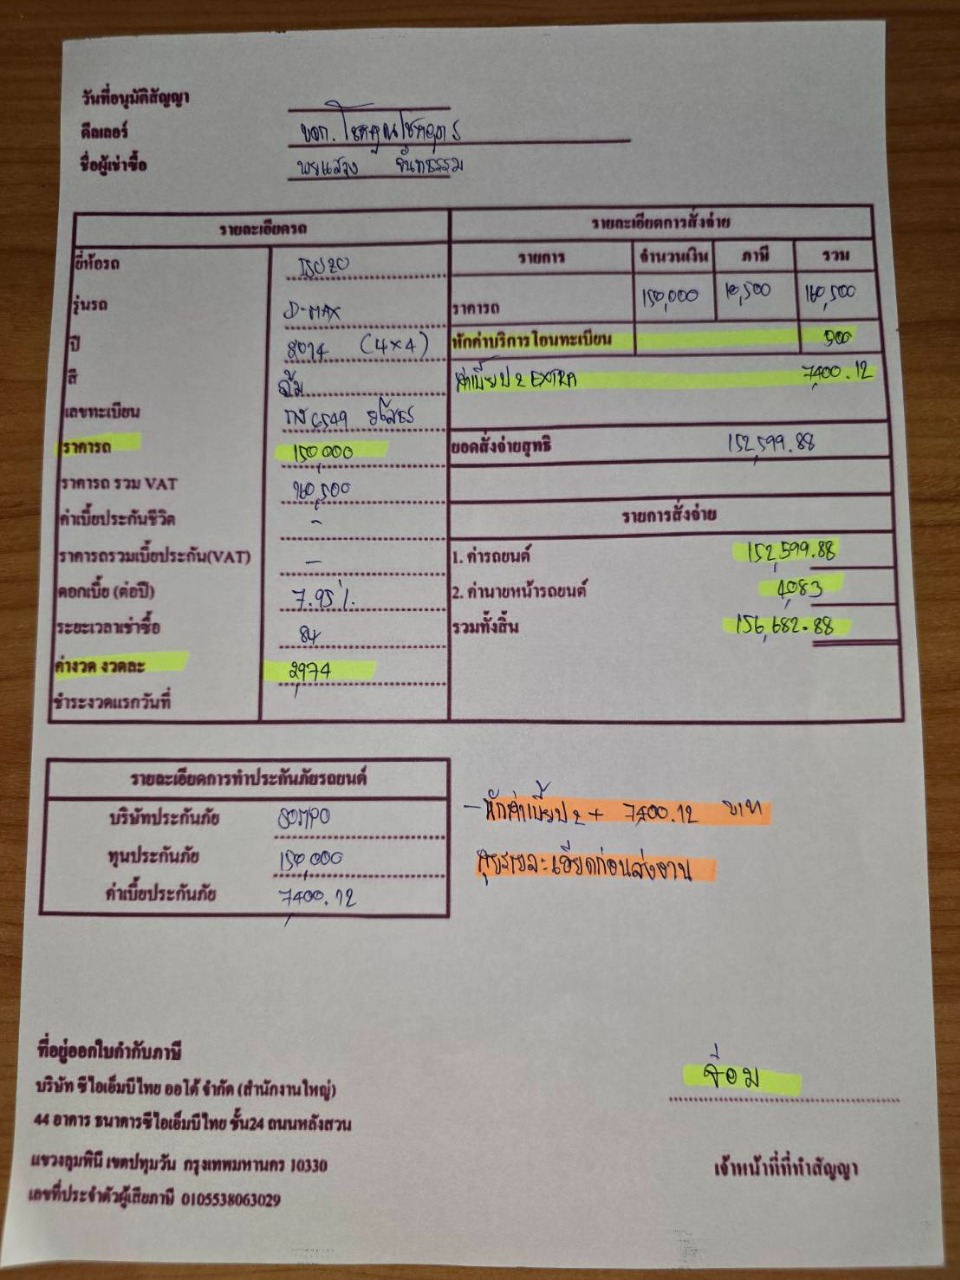 วันที่อนุมัติสัญญา
ดีลเลอร์ หจก.
ชื่อผู้เช่าซื้อ นายแสวง จันทธรรม
รายละเอียดรถ
ยี่ห้อรถ ISUZU
รุ่นรถ D-MAX
ปี (4x4)
สี ส้ม
เลขทะเบียน ยโสธร
ราคารถ 150,000
ราคารถ รวม VAT 160,500
ค่าเบี้ยประกันชีวิต -
ราคารถรวมเบี้ยประกัน(VAT) -
ดอกเบี้ย (ต่อปี) 7.95 %
ระยะเวลาเช่าซื้อ 84
ค่างวด งวดละ 2,974
ชำระงวดแรกวันที่
รายละเอียดการสั่งจ่าย
รายการ จำนวนเงิน ภาษี รวม
ราคารถ 150,000 10,500 160,500
หักค่าบริการโอนทะเบียน 500
ค่าเบี้ย ป2 EXTRA 7,400.12
ยอดสั่งจ่ายสุทธิ 152,599.88
รายการสั่งจ่าย
1. ค่ารถยนต์ 152,599.88
2. ค่านายหน้ารถยนต์ 4,083
รวมทั้งสิ้น 156,682.88
รายละเอียดการทำประกันภัยรถยนต์
บริษัทประกันภัย SOMPO
ทุนประกันภัย 150,000
ค่าเบี้ยประกันภัย 7,400.12
- หักค่าเบี้ย ป2+ 7,400.12 บาท
ดูรายละเอียดก่อนส่งงาน
ที่อยู่ออกใบกำกับภาษี
บริษัท ซีไอเอ็มบีไทย ออโต้ จำกัด (สำนักงานใหญ่)
44 อาคาร ธนาคารซีไอเอ็มบีไทย ชั้น24 ถนนหลังสวน
แขวงลุมพินี เขตปทุมวัน กรุงเทพมหานคร 10330
เลขที่ประจำตัวผู้เสียภาษี 0105538063029
เจ้าหน้าที่ที่ทำสัญญา